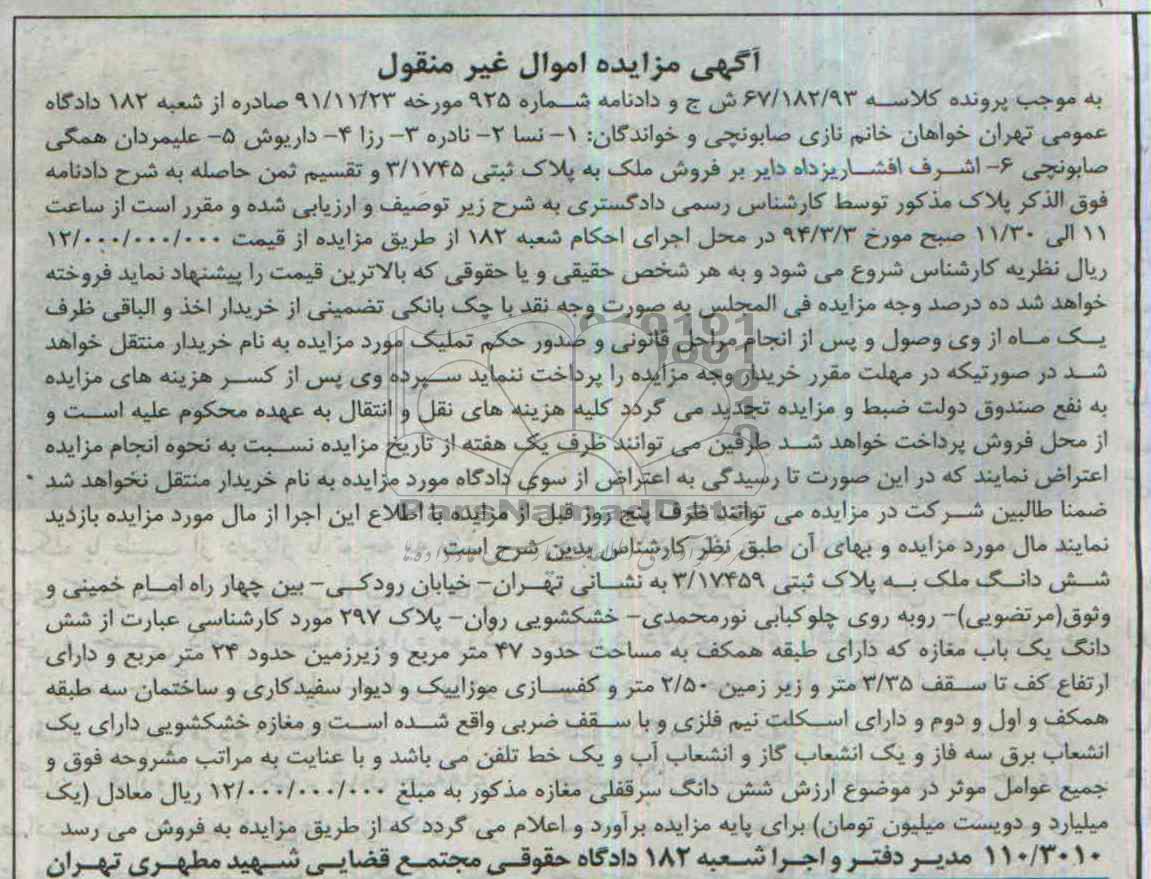 آگهی مزایده اموال غیر منقول
به موجب پرونده کلاسه ۶۷/۱۸۲/۹۳ ش ج و دادنامه شماره ۹۲۵ مورخه ۹۱/۱۱/۲۳ صادره از شعبه ۱۸۲ دادگاه
عمومی تهران خواهان خانم نازی صابونچی و خواندگان: ۱- نسا ۲- نادره ۳- رزا ۴- داریوش ۵- علیمردان همگی
صابونچی ۶- اشرف افشاریزداه دایر بر فروش ملک به پلاک ثبتی ۳/۱۷۴۵ و تقسیم ثمن حاصله به شرح دادنامه
فوق الذکر پلاک مذکور توسط کارشناس رسمی دادگستری به شرح زیر توصیف و ارزیابی شده و مقرر است از ساعت
۱۱ الی ۱۱/۳۰ صبح مورخ ۹۴/۳/۳ در محل اجرای احکام شعبه ۱۸۲ از طریق مزایده از قیمت ۱۲/۰۰۰/۰۰۰/۰۰۰
ریال نظریه کارشناس شروع می شود و به هر شخص حقیقی و یا حقوقی که بالاترین قیمت را پیشنهاد نماید فروخته
خواهد شد ده درصد وجه مزایده فی المجلس به صورت وجه نقد یا چک بانکی تضمینی از خریدار اخذ و الباقی ظرف
یک ماه از وی وصول و پس از انجام مراحل قانونی و صدور حکم تملیک مورد مزایده به نام خریدار منتقل خواهد
شد در صورتیکه در مهلت مقرر خریدار وجه مزایده را پرداخت ننماید سپرده وی پس از کسر هزینه های مزایده
به نفع صندوق دولت ضبط و مزایده تجدید می گردد کلیه هزینه های نقل و انتقال به عهده محکوم علیه است و
از محل فروش پرداخت خواهد شد طرفین می توانند ظرف یک هفته از تاریخ مزایده نسبت به نحوه انجام مزایده
اعتراض نمایند که در این صورت تا رسیدگی به اعتراض از سوی دادگاه مورد مزایده به نام خریدار منتقل نخواهد شد .
ضمنا طالبین شرکت در مزایده می توانند ظرف پنج روز قبل از مزایده با اطلاع این اجرا از مال مورد مزایده بازدید
نمایند مال مورد مزایده و بهای آن طبق نظر کارشناس بدین شرح است
شش دانگ ملک به پلاک ثبتی ۳/۱۷۴۵۹ به نشانی تهران- خیابان رودکی- بین چهار راه امام خمینی و
وثوق(مرتضویی)- روبه روی چلوکبابی نورمحمدی- خشکشویی روان- پلاک ۲۹۷ مورد کارشناسی عبارت از شش
دانگ یک باب مغازه که دارای طبقه همکف به مساحت حدود ۴۷ متر مربع و زیرزمین حدود ۲۴ متر مربع و دارای
ارتفاع کف تا سقف ۳/۳۵ متر و زیر زمین ۲/۵۰ متر و کفسازی موزاییک و دیوار سفیدکاری و ساختمان سه طبقه
همکف و اول و دوم و دارای اسکلت نیم فلزی و با سقف ضربی واقع شده است و مغازه خشکشویی دارای یک
انشعاب برق سه فاز و یک انشعاب گاز و انشعاب آب و یک خط تلفن می باشد و با عنایت به مراتب مشروحه فوق و
جمیع عوامل موثر در موضوع ارزش شش دانگ سرقفلی مغازه مذکور به مبلغ ۱۲/۰۰۰/۰۰۰/۰۰۰ ریال معادل (یک
میلیارد و دویست میلیون تومان) برای پایه مزایده برآورد و اعلام می گردد که از طریق مزایده به فروش می رسد
۱۱۰/۳۰۱۰ مدیر دفتر و اجرا شعبه ۱۸۲ دادگاه حقوقی مجتمع قضایی شهید مطهری تهران